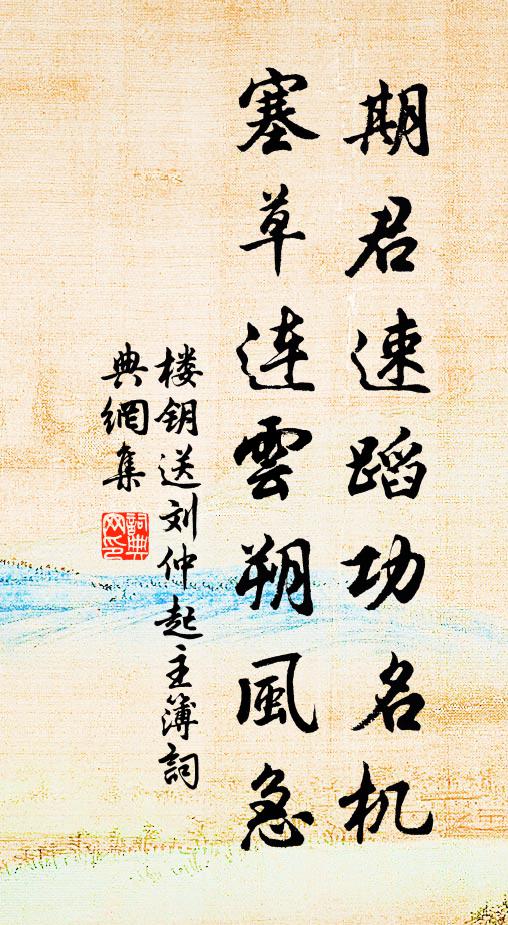 期君速蹈功名机
塞草连雲朔風急
楼钥送刘仲起主簿詞
典網集
詞典网印